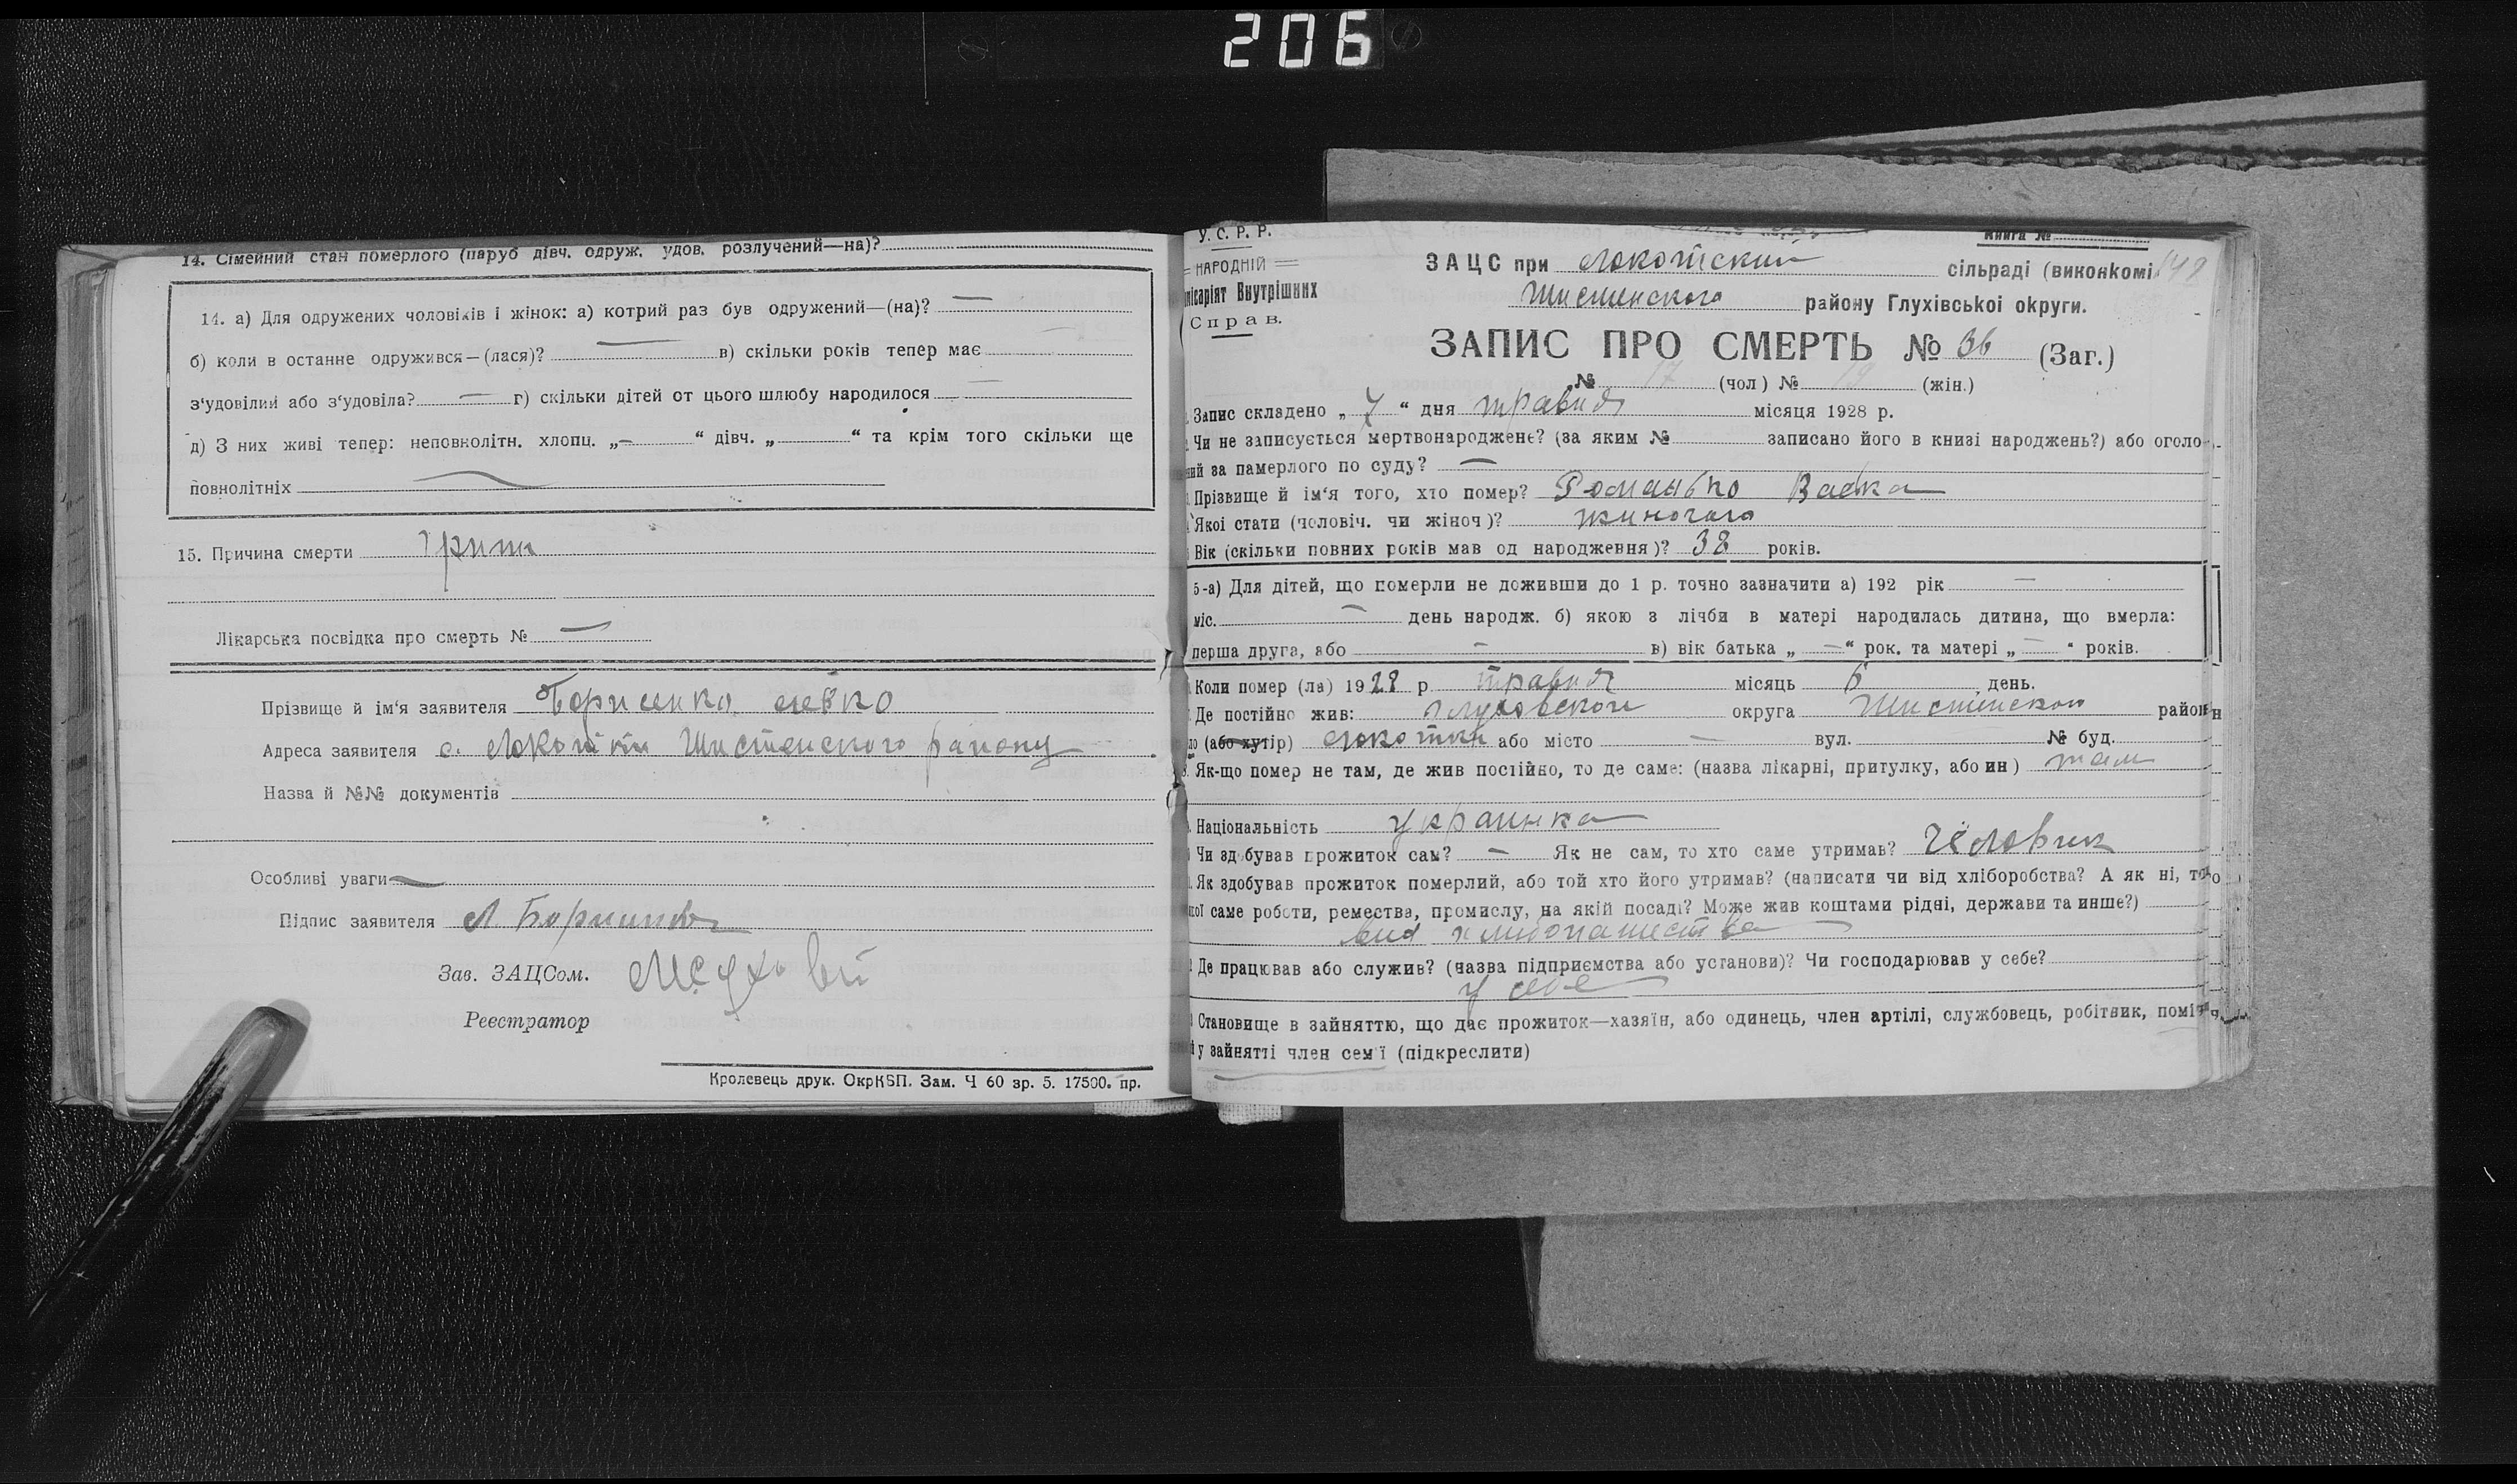 206
14. Сімейний стан померлого (паруб дівч. одруж. удов. розлучений—на)?
14. а) Для одружених чоловіків і жінок: а) котрий раз був одружений—(на)? —
б) коли в останне одружився—(лася)? — в) скільки років тепер має
з'удовілий або з'удовіла? — г) скільки дітей от цього шлюбу народилося —
д) З них живі тепер: неповнолітн. хлопц. „—“ дівч. „ “ та крім того скільки ще
повнолітніх —
15. Причина смерти грип
Лікарська посвідка про смерть № —
Прізвище й ім'я заявителя Борисенко Левко
Адреса заявителя с. Локотки Шистенского району
Назва й №№ документів
Особливі уваги —
Підпис заявителя Л Борисенко
Зав. ЗАЦСом.
Реестратор
Кролевець друк. ОкрКВП. Зам. Ч 60 зр. 5. 17500. пр.
У. С. Р. Р.
НАРОДНІЙ
місаріят Внутрішних
Справ.
Книга №
ЗАЦС при Локотский сільраді (виконкомі
Шистенского району Глухівської округи.
ЗАПИС ПРО СМЕРТЬ № 36 (Заг.)
№ 17 (чол) № 19 (жін.)
Запис складено „ 7 “ дня травня місяця 1928 р.
Чи не записується мертвонароджене? (за яким № записано його в книзі народжень?) або оголо-
ний за памерлого по суду? —
Прізвище й ім'я того, хто помер? Романько
Якої стати (чоловіч. чи жіноч)? жиночого
Вік (скільки повних років мав од народження)? 38 років.
5-а) Для дітей, що померли не доживши до 1 р. точно зазначити а) 192 рік —
міс. — день народж. б) якою з лічби в матері народилась дитина, що вмерла:
перша друга, або — в) вік батька „ — “ рок. та матері „ — “ років.
Коли помер (ла) 1928 р травня місяць 6 день.
Де постійно жив: Глуховской округа Шистенской район
(або хутір) Локотки або місто — вул. № буд.
Як-що помер не там, де жив постійно, то де саме: (назва лікарні, притулку, або ин) там
Національність Украинка
Чи здобував прожиток сам? — Як не сам, то хто саме утримав? Человик
Як здобував прожиток померлий, або той хто його утримав? (написати чи від хліборобства? А як ні, то
кої саме роботи, ремества, промислу, на якій посаді? Може жив коштами рідні, держави та инше?)
вид хлибопашества
Де працював або служив? (назва підприємства або установи)? Чи господарював у себе?
У себе
Становище в зайняттю, що дає прожиток—хазяїн, або одинець, член артілі, службовець, робітник, поміч
у зайнятті член сем'ї (підкреслити)